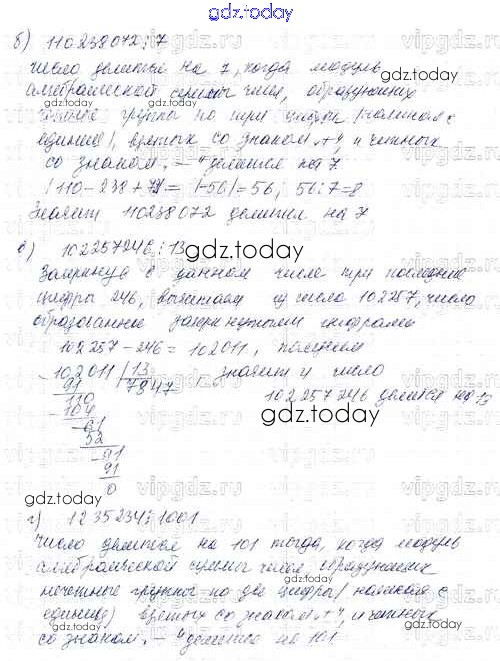 gdz.today
б) 110238072 ⋮ 7
число делится на 7, когда модуль
алгебраической суммы чисел, образующих
группы по три цифры (начиная с
единиц), взятых со знаком „+", и четных
со знаком „–" делится на 7
|110 – 238 + 72| = |–56| = 56, 56 : 7 = 8
Значит 110238072 делится на 7
в) 102257246 ⋮ 13
gdz.today
Зачеркнув в данном числе три последние
цифры 246, вычитаем из числа 102257, число
образованное зачеркнутыми цифрами
102257 – 246 = 102011, получаем
– 102011 | 13 значит и число
91 7847
102257246 делится на 13
110
– 104
gdz.today
– 61
52
– 91
91
0
gdz.today
г) 1235234 ⋮ 1001
число делится на 101 тогда, когда модуль
алгебраической суммы чисел, образующих
gdz.today
нечетные группы по две цифры (начиная с
единиц) взятых со знаком „+", и четных
со знаком „–" делится на 101
gdz.today